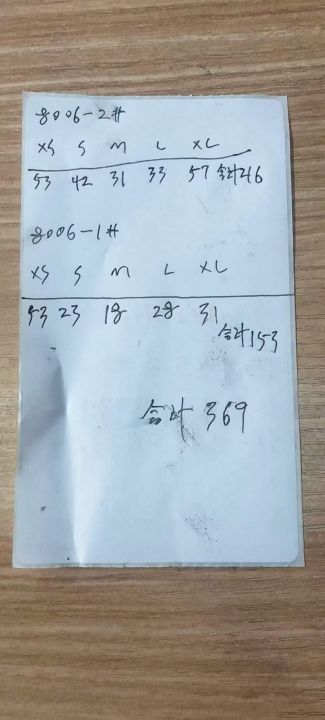 8006-2#
XS S M L XL
53 42 31 33 57 合计216
8006-1#
XS S M L XL
53 23 18 28 31
合计153
合计 369